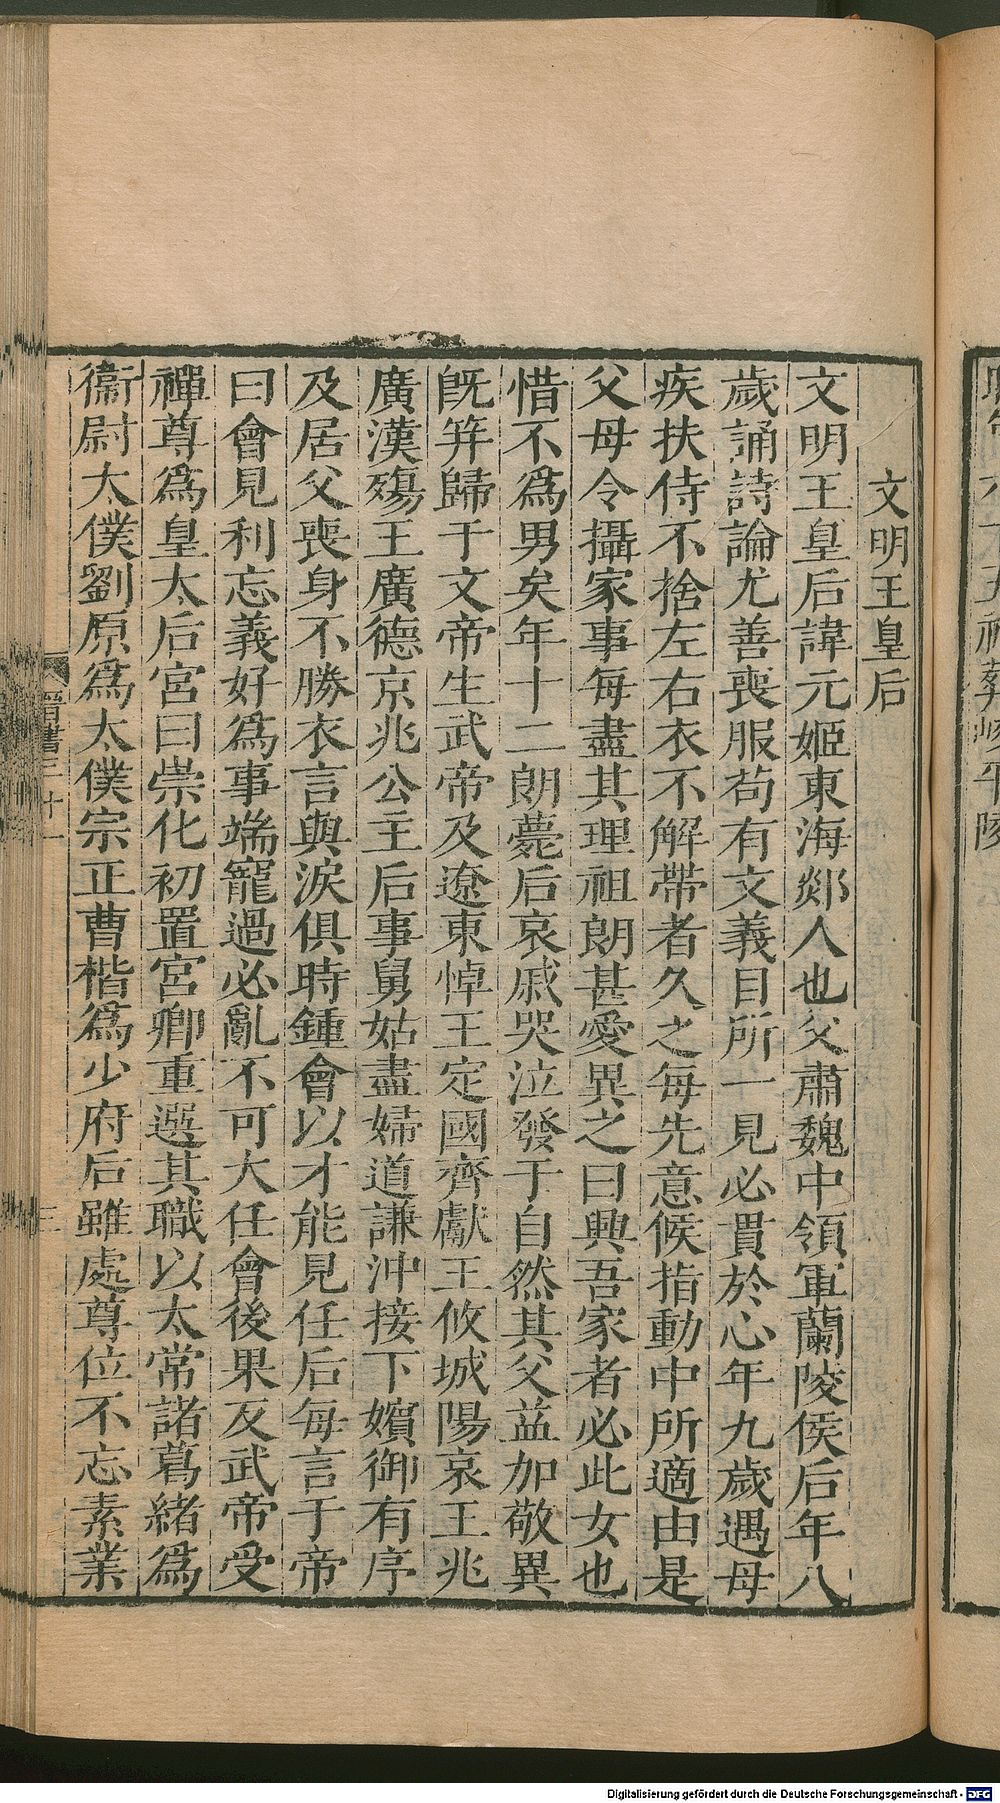 文明王皇后
文明王皇后諱元姬東海郯人也父肅魏中領軍蘭陵侯后年八
歲誦詩論尤善喪服苟有文義目所一見必貫於心年九歲遇母
疾扶侍不捨左右衣不解帶者久之每先意候指動中所適由是
父母令攝家事每盡其理祖朗甚愛異之曰興吾家者必此女也
惜不爲男矣年十二朗薨后哀戚哭泣發于自然其父益加敬異
旣筓歸于文帝生武帝及遼東悼王定國齊獻王攸城陽哀王兆
廣漢殤王廣德京兆公主后事舅姑盡婦道謙沖接下嬪御有序
及居父喪身不勝衣言與淚俱時鍾會以才能見任后每言于帝
曰會見利忘義好爲事端寵過必亂不可大任會後果反武帝受
禪尊爲皇太后宮曰崇化初置宮卿重選其職以太常諸葛緒爲
衞尉太僕劉原爲太僕宗正曹楷爲少府后雖處尊位不忘素業
晉書三十一
三
Digitalisierung gefördert durch die Deutsche Forschungsgemeinschaft - DFG